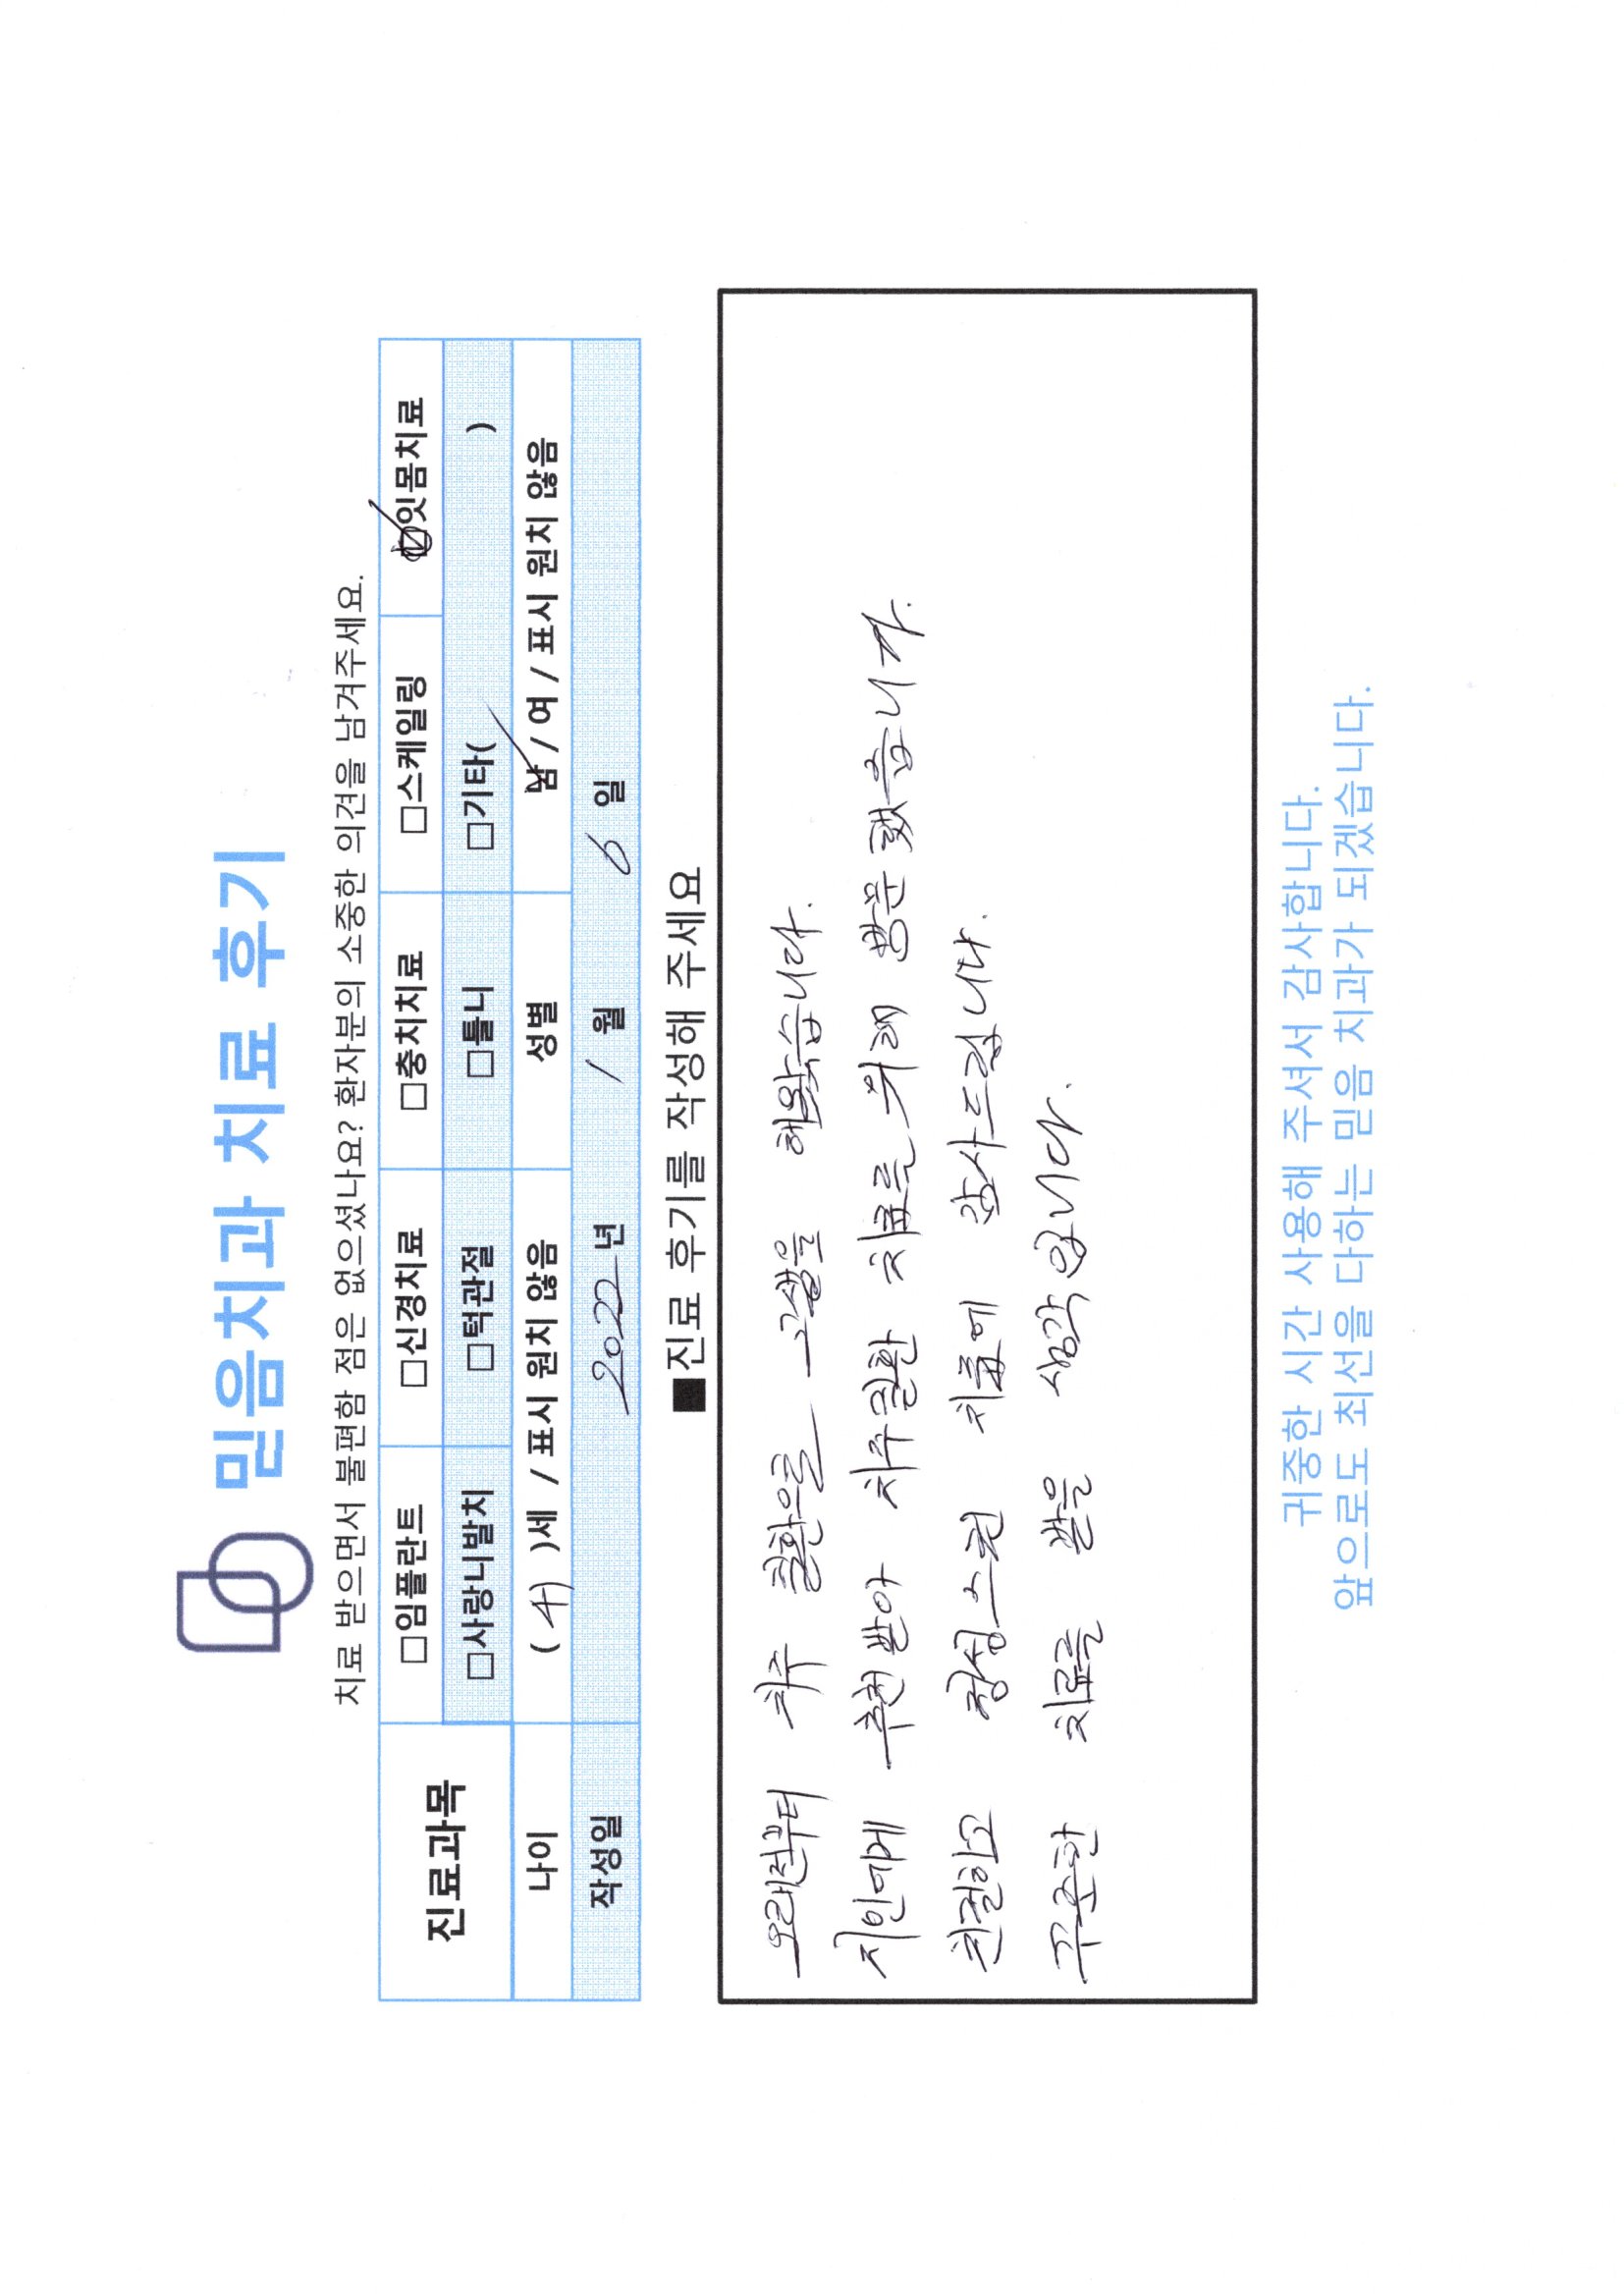 믿음치과 치료 후기
치료 받으면서 불편함 점은 없으셨나요? 환자분의 소중한 의견을 남겨주세요.
진료과목 □임플란트 □신경치료 □충치치료 □스케일링 ☑잇몸치료
□사랑니발치 □턱관절 □틀니 □기타( )
나이 ( )세 / 표시 원치 않음 성별 남 / 여 / 표시 원치 않음
작성일 2022년 1월 6일
■진료 후기를 작성해 주세요
오래전부터 치주 질환으로 고생을 해왔습니다.
지인에게 추천 받아 치주질환 치료를 위해 방문했습니다.
친절하고 정성스런 치료에 감사드립니다.
꾸준한 치료를 받을 생각입니다.
귀중한 시간 사용해 주셔서 감사합니다.
앞으로도 최선을 다하는 믿음 치과가 되겠습니다.